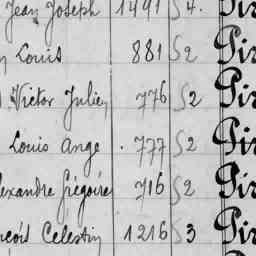 Jean Joseph 1491 S 4. Pir
Louis 881 S 2 Pir
Victor Julien 776 S 2 Pir
Louis Ange . 777 S 2 Pir
lexandre Grégoire 716 S 2 Pir
nçois Celestin 1216 S 3 Pir